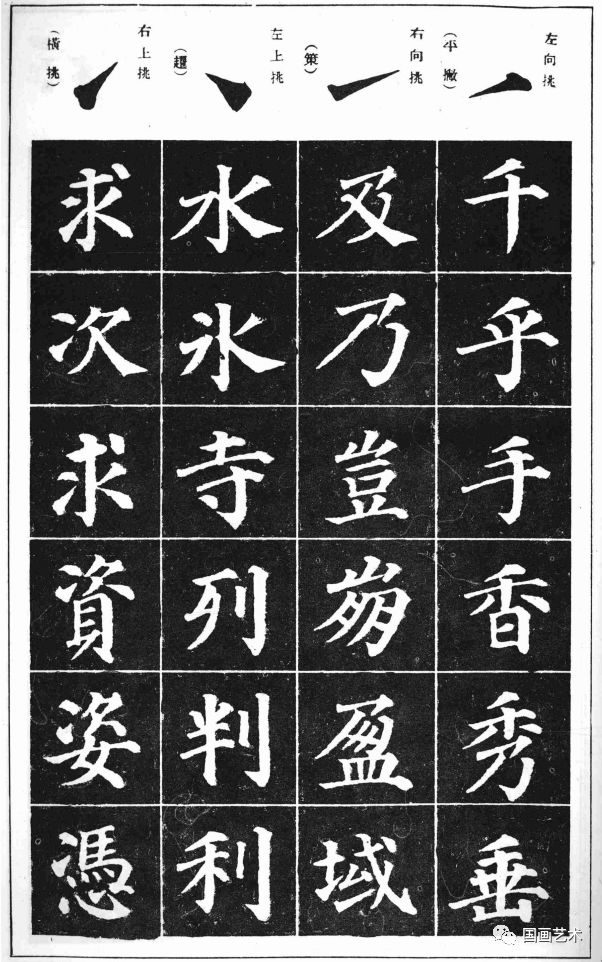 左向挑
(平撇)
右向挑
(策)
左上挑
(趯)
右上挑
(橫挑)
千乎手香秀垂
及乃豈崩盈域
水氷寺列判利
求次求資姿憑
国画艺术